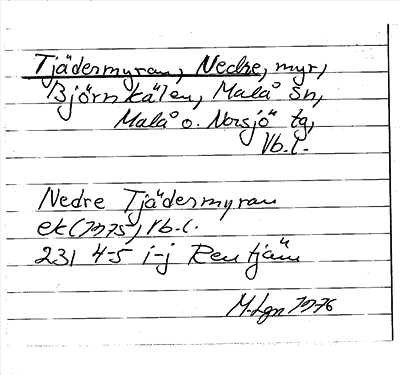 Tjädermyran, Nedre, myr,
Björnkälen, Malå sn,
Malå o. Norsjö tg,
Vb.l.
Nedre Tjädermyran
ek (1975) Vb.l.
231 4-5 i-j Rentjärn
M.Lgn 1976